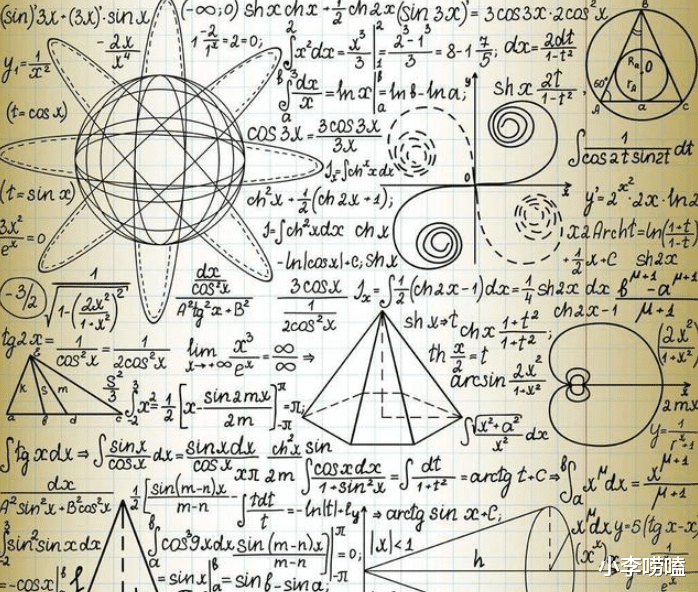 (sin)'3x+(3x)'·sinx
(-∞;0) shx chx+1/2 ch2x(sin3x)'=3cos3x·2cos²x
-2x/x⁴
y₁=1/x²
=0;
∫₁² x²dx = x³/3 |₁² = 2³-1³/3 = 8-1 7/5; dx = 2dt/1-t²
B
R₀ O
r_A
60°
A a C
∫ₐᵇ dx/x = ln x|ₐᵇ = ln b - ln a;
y
shx 2t/1-t²
(t=cosx)
cos3x = 3cos3x/3x
∫ 1/cos2t sin2t dt
0
x
(t=sinx)
ch²x+1/2(ch2x+1);
y'=2^x²·2x·ln2
3x²/eˣ=0
J=∫ch²xdx chx
x2Archt=ln(1+t/1-t)
-ln|cosx|+c; shx
+1/2x+C sh2x
-3/2
1/√1-(2x²/1+x²)²
dx/cos²x
A²tg²x+B²
3cosx
1/2cos²x
Jₓ=∫1/2(ch2x-1)dx=1/4 sh2x dx
b^μ+1-a^μ+1/μ+1
ch2x-1
tg2x= 1/cos²x = 1/2cos²x
lim x→+∞ x³/eˣ = ∞/∞ ⇒
shx⇒t chx 1+t²/1+t²;
th x/2=t
arcsin 2x²/1+x²
|2x²/1+x²|
k s m
a b d c
S²/3
∫₋₂³ x²=1/2[x-sin2mx/2m]₋π^π=π;
∫√x²+a²/x² dx
x
2mx
∫tgxdx ⇒ ∫sinx/cosx dx = sinxdx/cosx
ch²x/x sin
xπ 2m
∫cosxdx/1+sin²x=∫dt/1+t²=arctgt+C⇒
∫ₐᵇ x^μdx = x^μ+1/μ+1
dx
A²sin²x+B²cos²x
1/2[sin(m-n)x/m-n
∫tdt/t=-ln|t|+
⇒ arctg sinx+C;
x^μdx y=5(tgx-x)
∫₋₂³ sin²sinxdx
∫ₐᵇ cos²9xdx
sin(m-n)x/m-n]₋π^π=0;
|x|<1
h
=-cosx|
=sinx|ₐᵇ=sinb-sina;
小李唠嗑